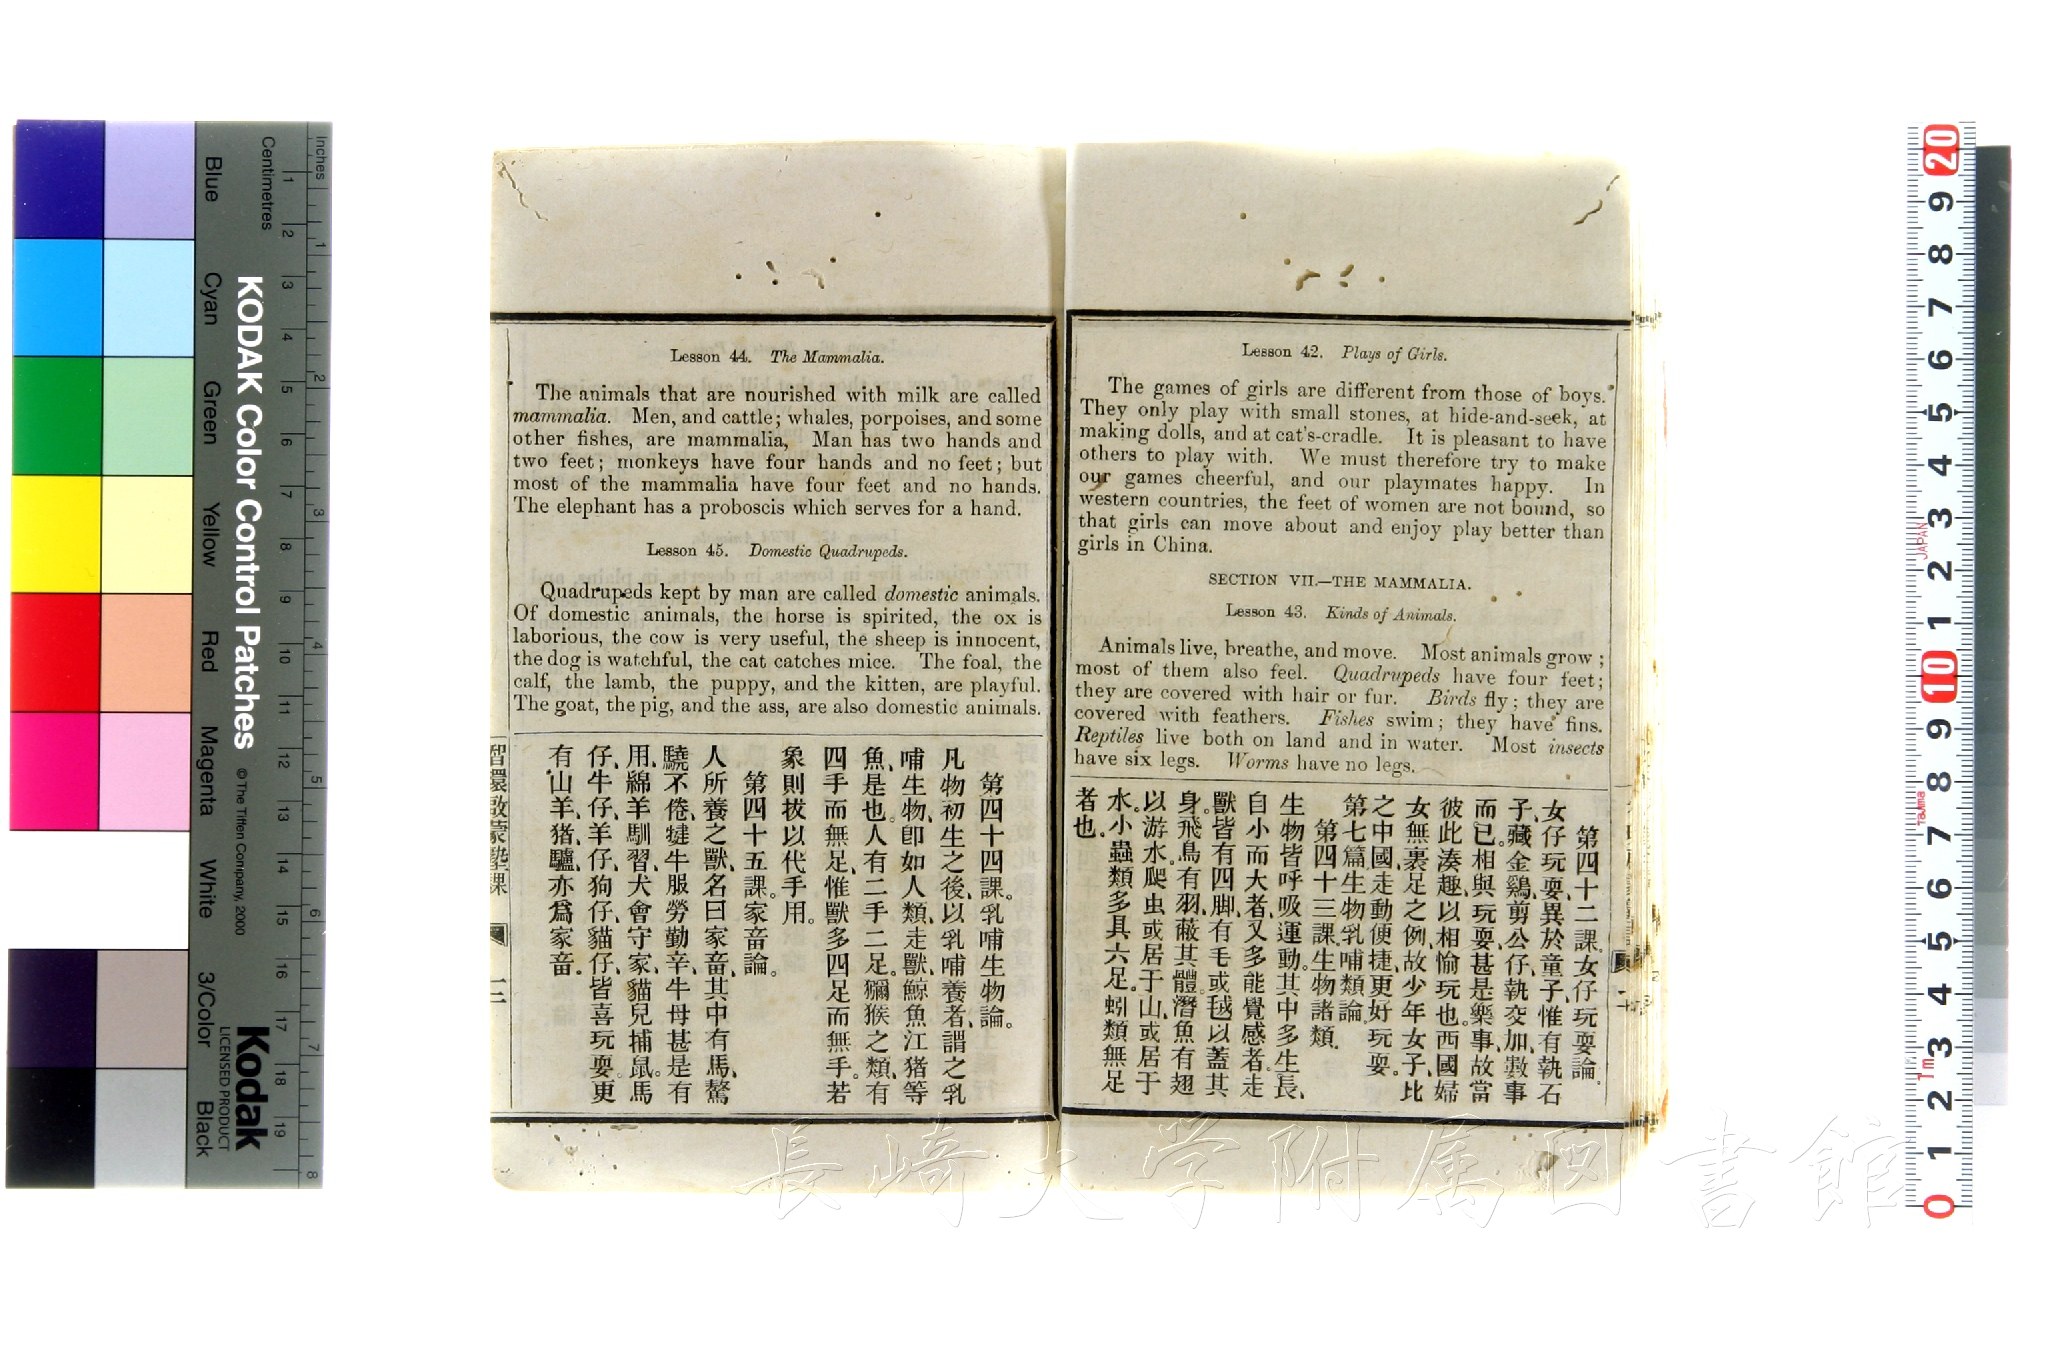 Lesson 42. Plays of Girls.
The games of girls are different from those of boys.
They only play with small stones, at hide-and-seek, at
making dolls, and at cat's-cradle. It is pleasant to have
others to play with. We must therefore try to make
our games cheerful, and our playmates happy. In
western countries, the feet of women are not bound, so
that girls can move about and enjoy play better than
girls in China.
SECTION VII.—THE MAMMALIA.
Lesson 43. Kinds of Animals.
Animals live, breathe, and move. Most animals grow;
most of them also feel. Quadrupeds have four feet;
they are covered with hair or fur. Birds fly; they are
covered with feathers. Fishes swim; they have fins.
Reptiles live both on land and in water. Most insects
have six legs. Worms have no legs.
第四十二課、女仔玩耍論。
女仔玩耍、異於童子、惟有執石
子、藏金鷄、剪公仔、執交加、數事
而已。相與玩耍、甚是樂事、故當
彼此湊趣、以相愉玩也。西國婦
女無裹足之例、故少年女子、比
之中國、走動便捷、更好玩耍。
第七篇生物乳哺類論。
第四十三課、生物諸類。
生物皆呼吸運動。其中多生長、
自小而大者、又多能覺感者。走
獸皆有四脚、有毛或毬以蓋其
身。飛鳥有羽、蔽其體。潛魚有翅
以游水。爬虫或居于山、或居于
水。小蟲類多具六足。蚓類無足
者也。
Lesson 44. The Mammalia.
The animals that are nourished with milk are called
mammalia. Men, and cattle; whales, porpoises, and some
other fishes, are mammalia, Man has two hands and
two feet; monkeys have four hands and no feet; but
most of the mammalia have four feet and no hands.
The elephant has a proboscis which serves for a hand.
Lesson 45. Domestic Quadrupeds.
Quadrupeds kept by man are called domestic animals.
Of domestic animals, the horse is spirited, the ox is
laborious, the cow is very useful, the sheep is innocent,
the dog is watchful, the cat catches mice. The foal, the
calf, the lamb, the puppy, and the kitten, are playful.
The goat, the pig, and the ass, are also domestic animals.
第四十四課。乳哺生物論。
凡物初生之後、以乳哺養者、謂之乳
哺生物、卽如人類、走獸、鯨魚江猪等
魚是也。人有二手二足。獼猴之類、有
四手而無足、惟獸多四足而無手。若
象則拔以代手用。
第四十五課。家畜論。
人所養之獸、名曰家畜、其中有馬、驁
驍不倦、犍牛服勞勤辛、牛母甚是有
用、綿羊馴習、犬會守家、貓兒捕鼠。馬
仔、牛仔、羊仔、狗仔、貓仔、皆喜玩耍。更
有山羊、猪、驢、亦爲家畜。
智環啟蒙塾課
KODAK Color Control Patches
© The Tiffen Company, 2000
Kodak
LICENSED PRODUCT
Inches
Centimetres
Blue
Cyan
Green
Yellow
Red
Magenta
White
3/Color
Black
1 2 3 4 5 6 7 8 9 10 11 12 13 14 15 16 17 18 19
1 2 3 4 5 6 7 8
20 9 8 7 6 5 4 3 2 1 10 9 8 7 6 5 4 3 2 1 0
JAPAN
Tajima
1m
長崎大学附属図書館